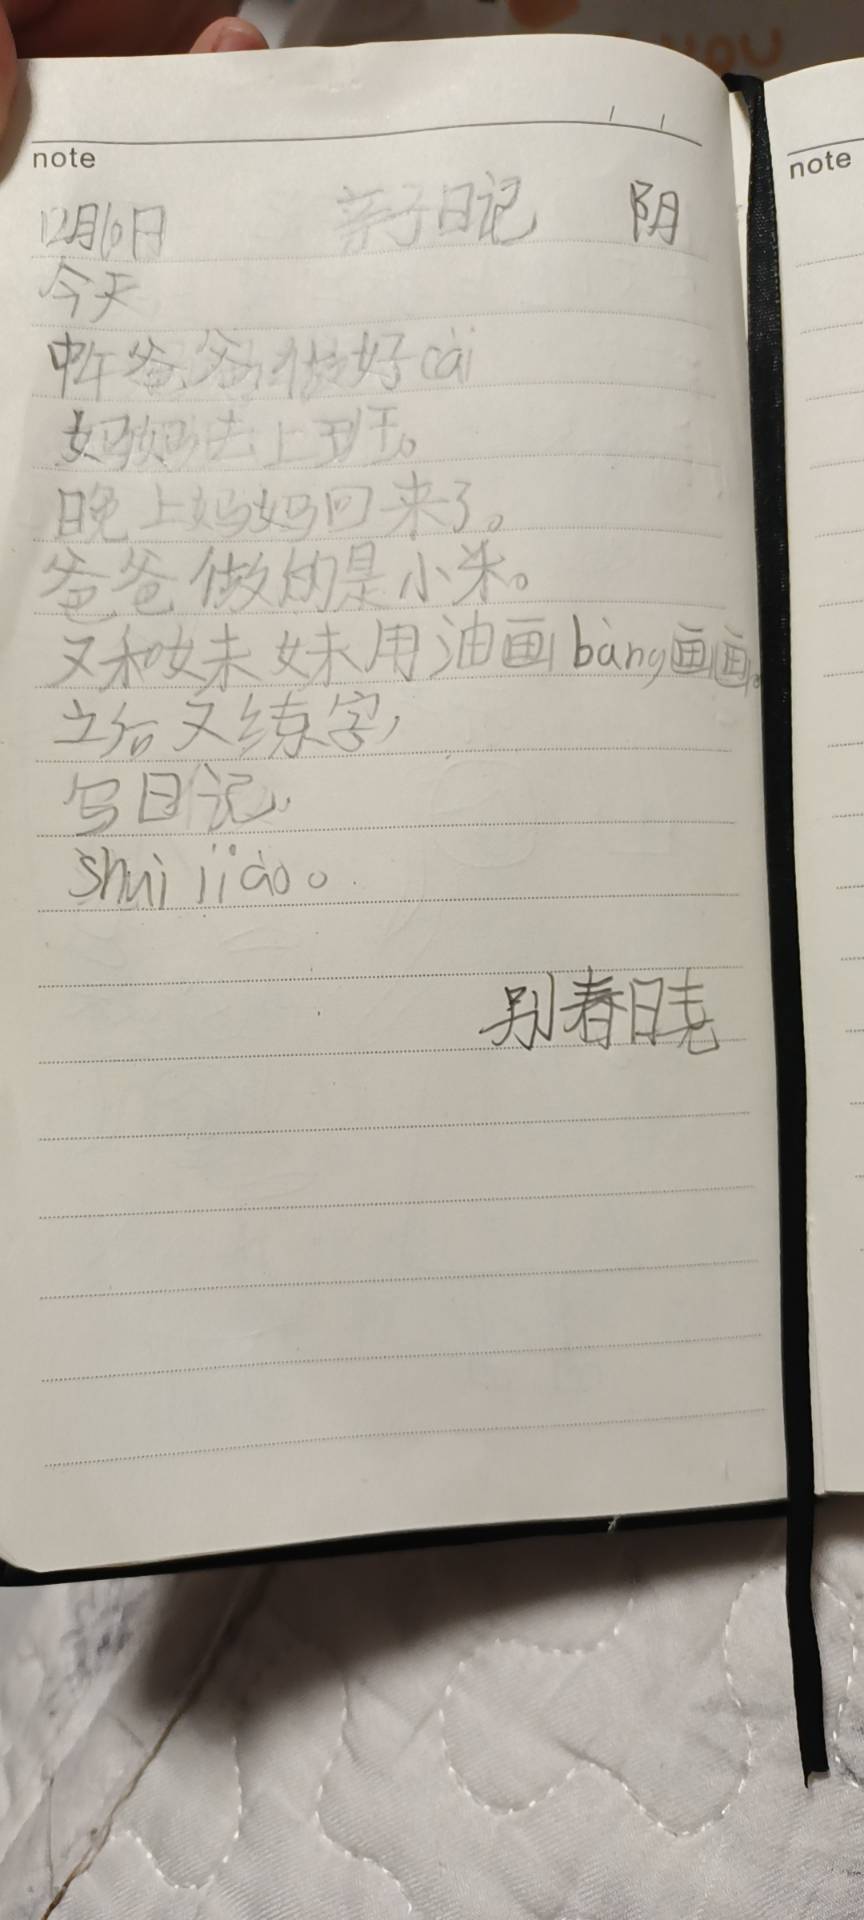 note
note
12月6日 亲子日记 阴
今天
中午爸爸做好cài
妈妈去上班。
晚上妈妈回来了。
爸爸做的是小米。
又和妹妹用油画bàng画画。
立后又练字,
写日记,
shuì jiào。
别春日尧